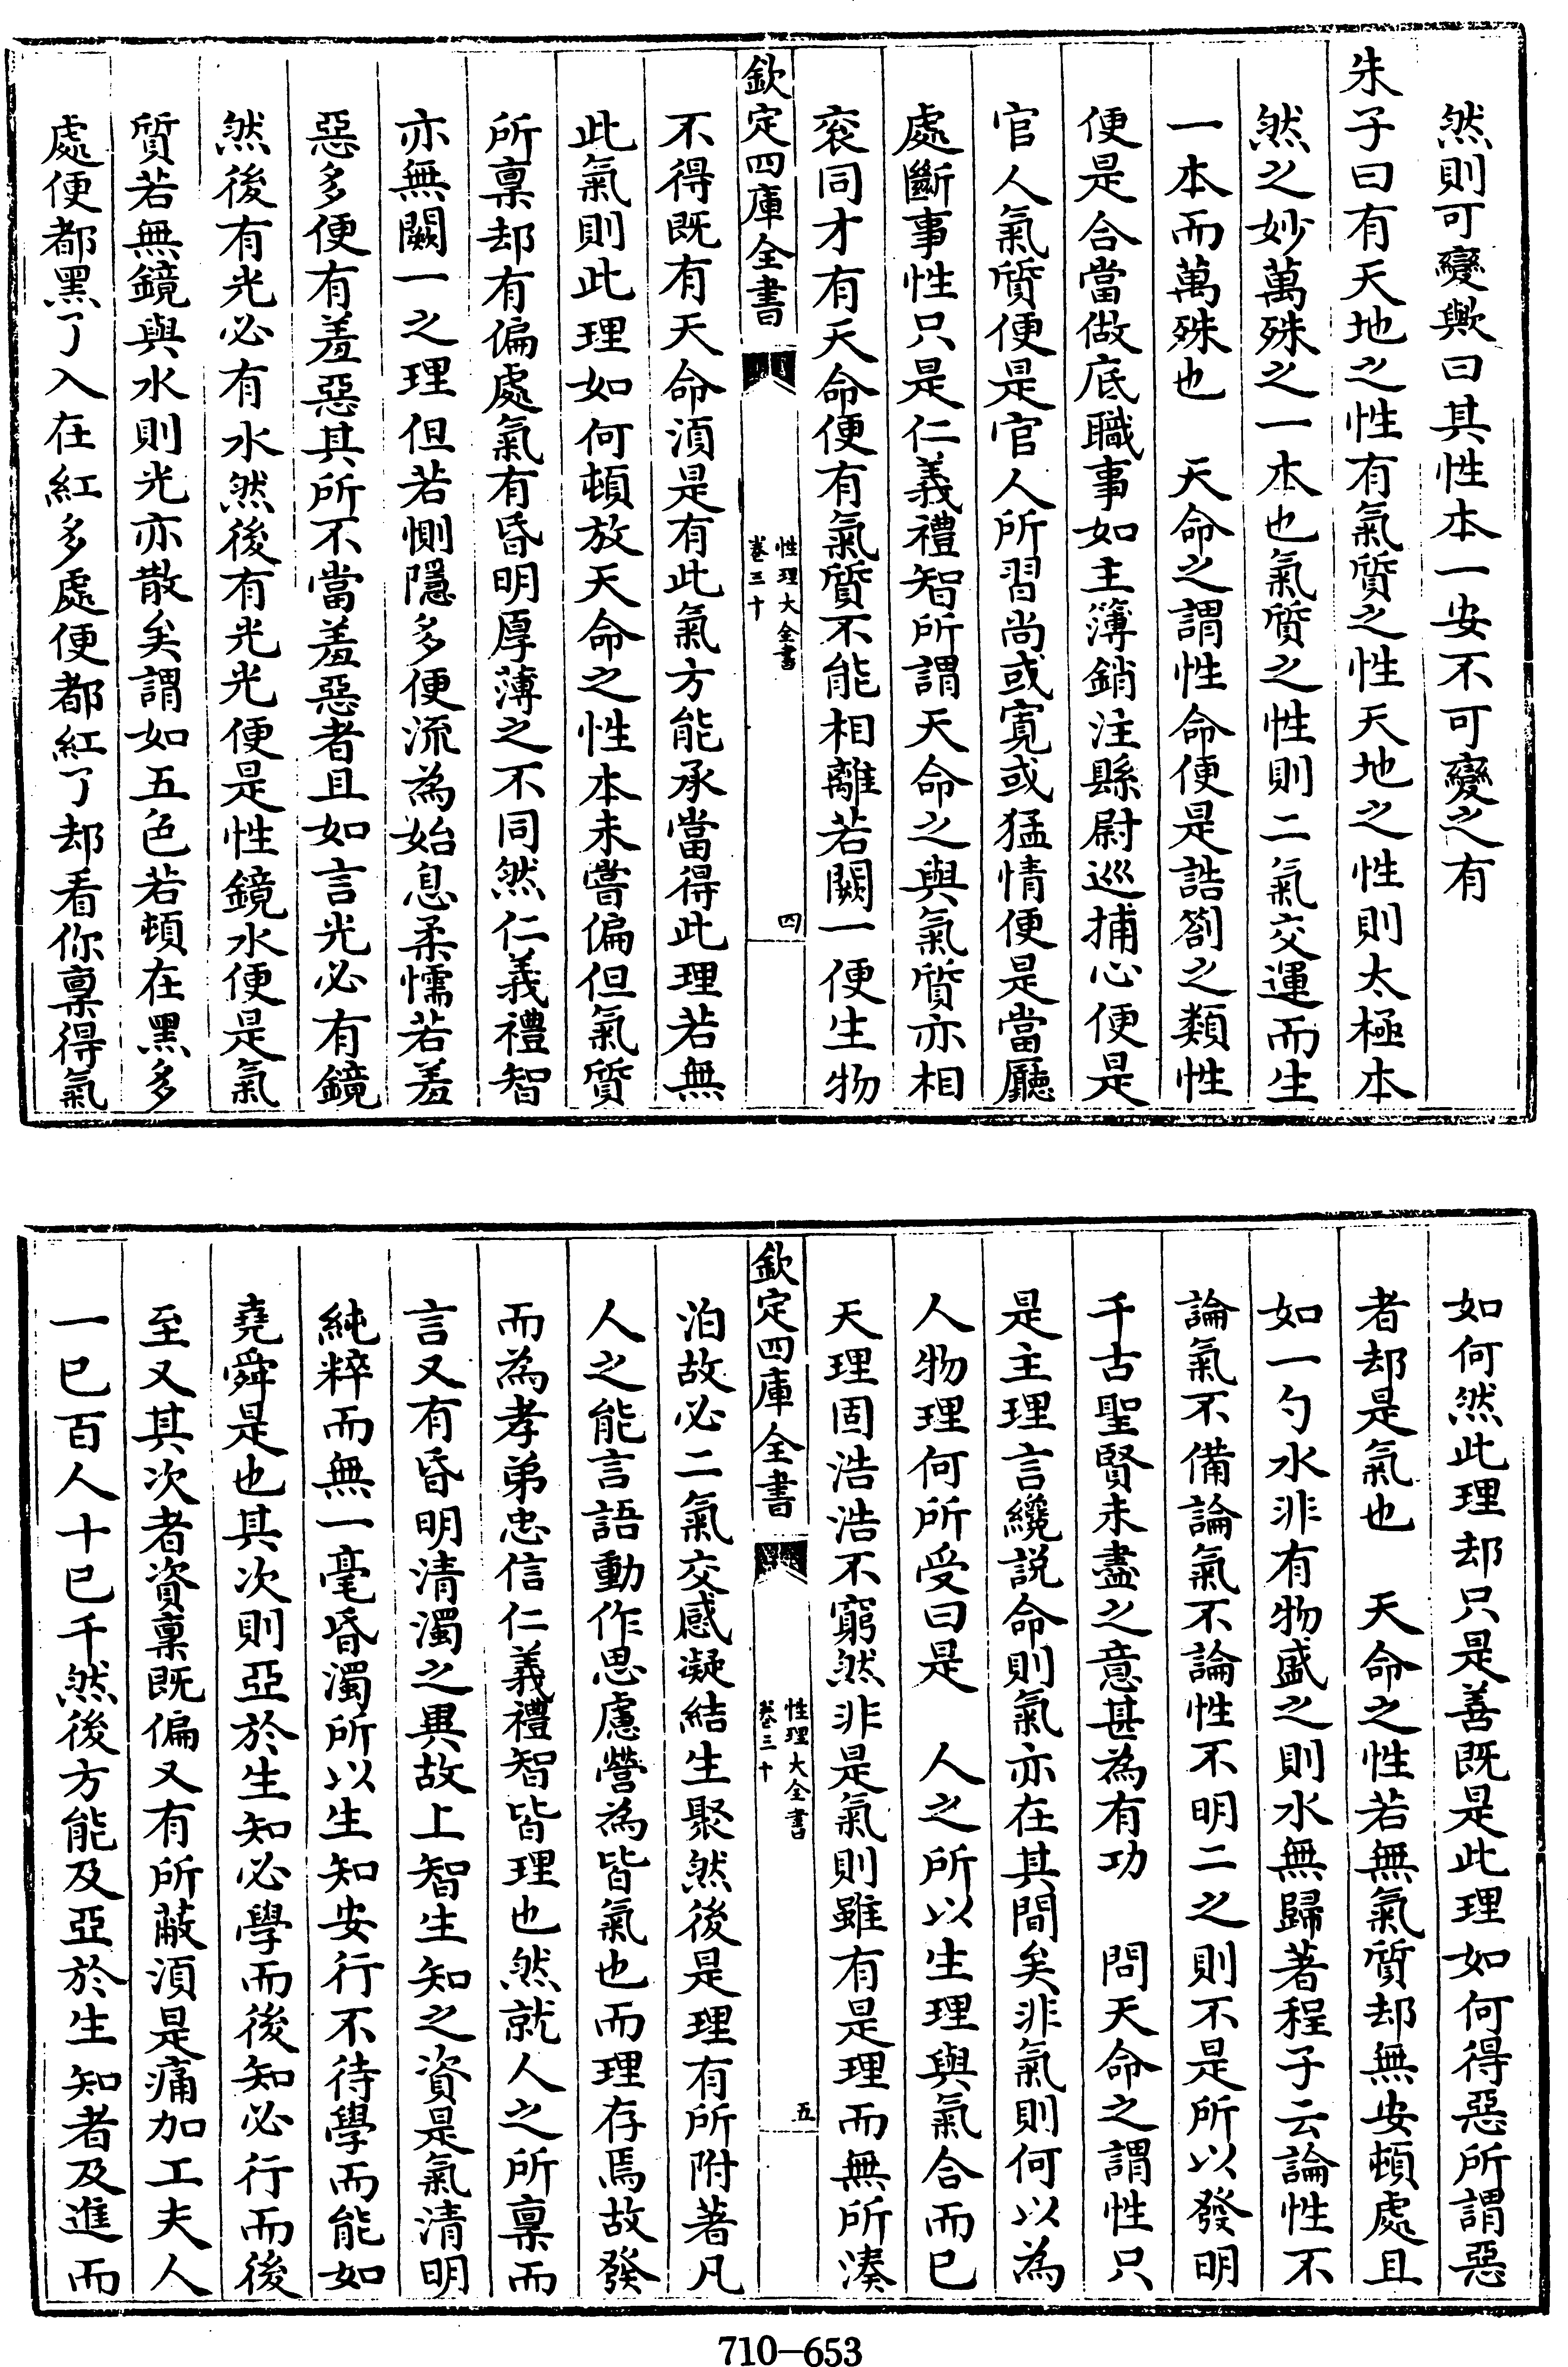 然則可變歟曰其性本一安不可變之有
朱子曰有天地之性有氣質之性天地之性則太極本
然之妙萬殊之一本也氣質之性則二氣交運而生
一本而萬殊也　天命之謂性命便是誥劄之類性
便是合當做底職事如主簿銷注縣尉巡捕心便是
官人氣質便是官人所習尚或寛或猛情便是當廳
處斷事性只是仁義禮智所謂天命之與氣質亦相
衮同才有天命便有氣質不能相離若闕一便生物
欽定四庫全書
性理大全書
卷三十
四
不得既有天命湏是有此氣方能承當得此理若無
此氣則此理如何頓放天命之性本未嘗偏但氣質
所稟却有偏處氣有昏明厚薄之不同然仁義禮智
亦無闕一之理但若惻隱多便流為姑息柔懦若羞
惡多便有羞惡其所不當羞惡者且如言光必有鏡
然後有光必有水然後有光光便是性鏡水便是氣
質若無鏡與水則光亦散矣謂如五色若頓在黑多
處便都黑了入在紅多處便都紅了却看你稟得氣
如何然此理却只是善既是此理如何得惡所謂惡
者却是氣也　天命之性若無氣質却無安頓處且
如一勺水非有物盛之則水無歸著程子云論性不
論氣不備論氣不論性不明二之則不是所以發明
千古聖賢未盡之意甚為有功　問天命之謂性只
是主理言纔説命則氣亦在其間矣非氣則何以為
人物理何所受曰是　人之所以生理與氣合而已
天理固浩浩不窮然非是氣則雖有是理而無所湊
欽定四庫全書
性理大全書
卷三十
五
泊故必二氣交感凝結生聚然後是理有所附著凡
人之能言語動作思慮營為皆氣也而理存焉故發
而為孝弟忠信仁義禮智皆理也然就人之所稟而
言又有昏明清濁之異故上智生知之資是氣清明
純粹而無一毫昏濁所以生知安行不待學而能如
堯舜是也其次則亞於生知必學而後知必行而後
至又其次者資稟既偏又有所蔽湏是痛加工夫人
一已百人十已千然後方能及亞於生知者及進而
710-653